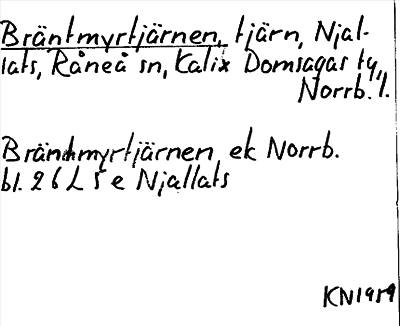 Bräntmyrtjärnen, tjärn, Njal-
lats, Råneå sn, Kalix Domsagas tg,
Norrb. l.
Brändmyrtjärnen ek Norrb.
bl. 26 L 5 e Njallats
KN1959